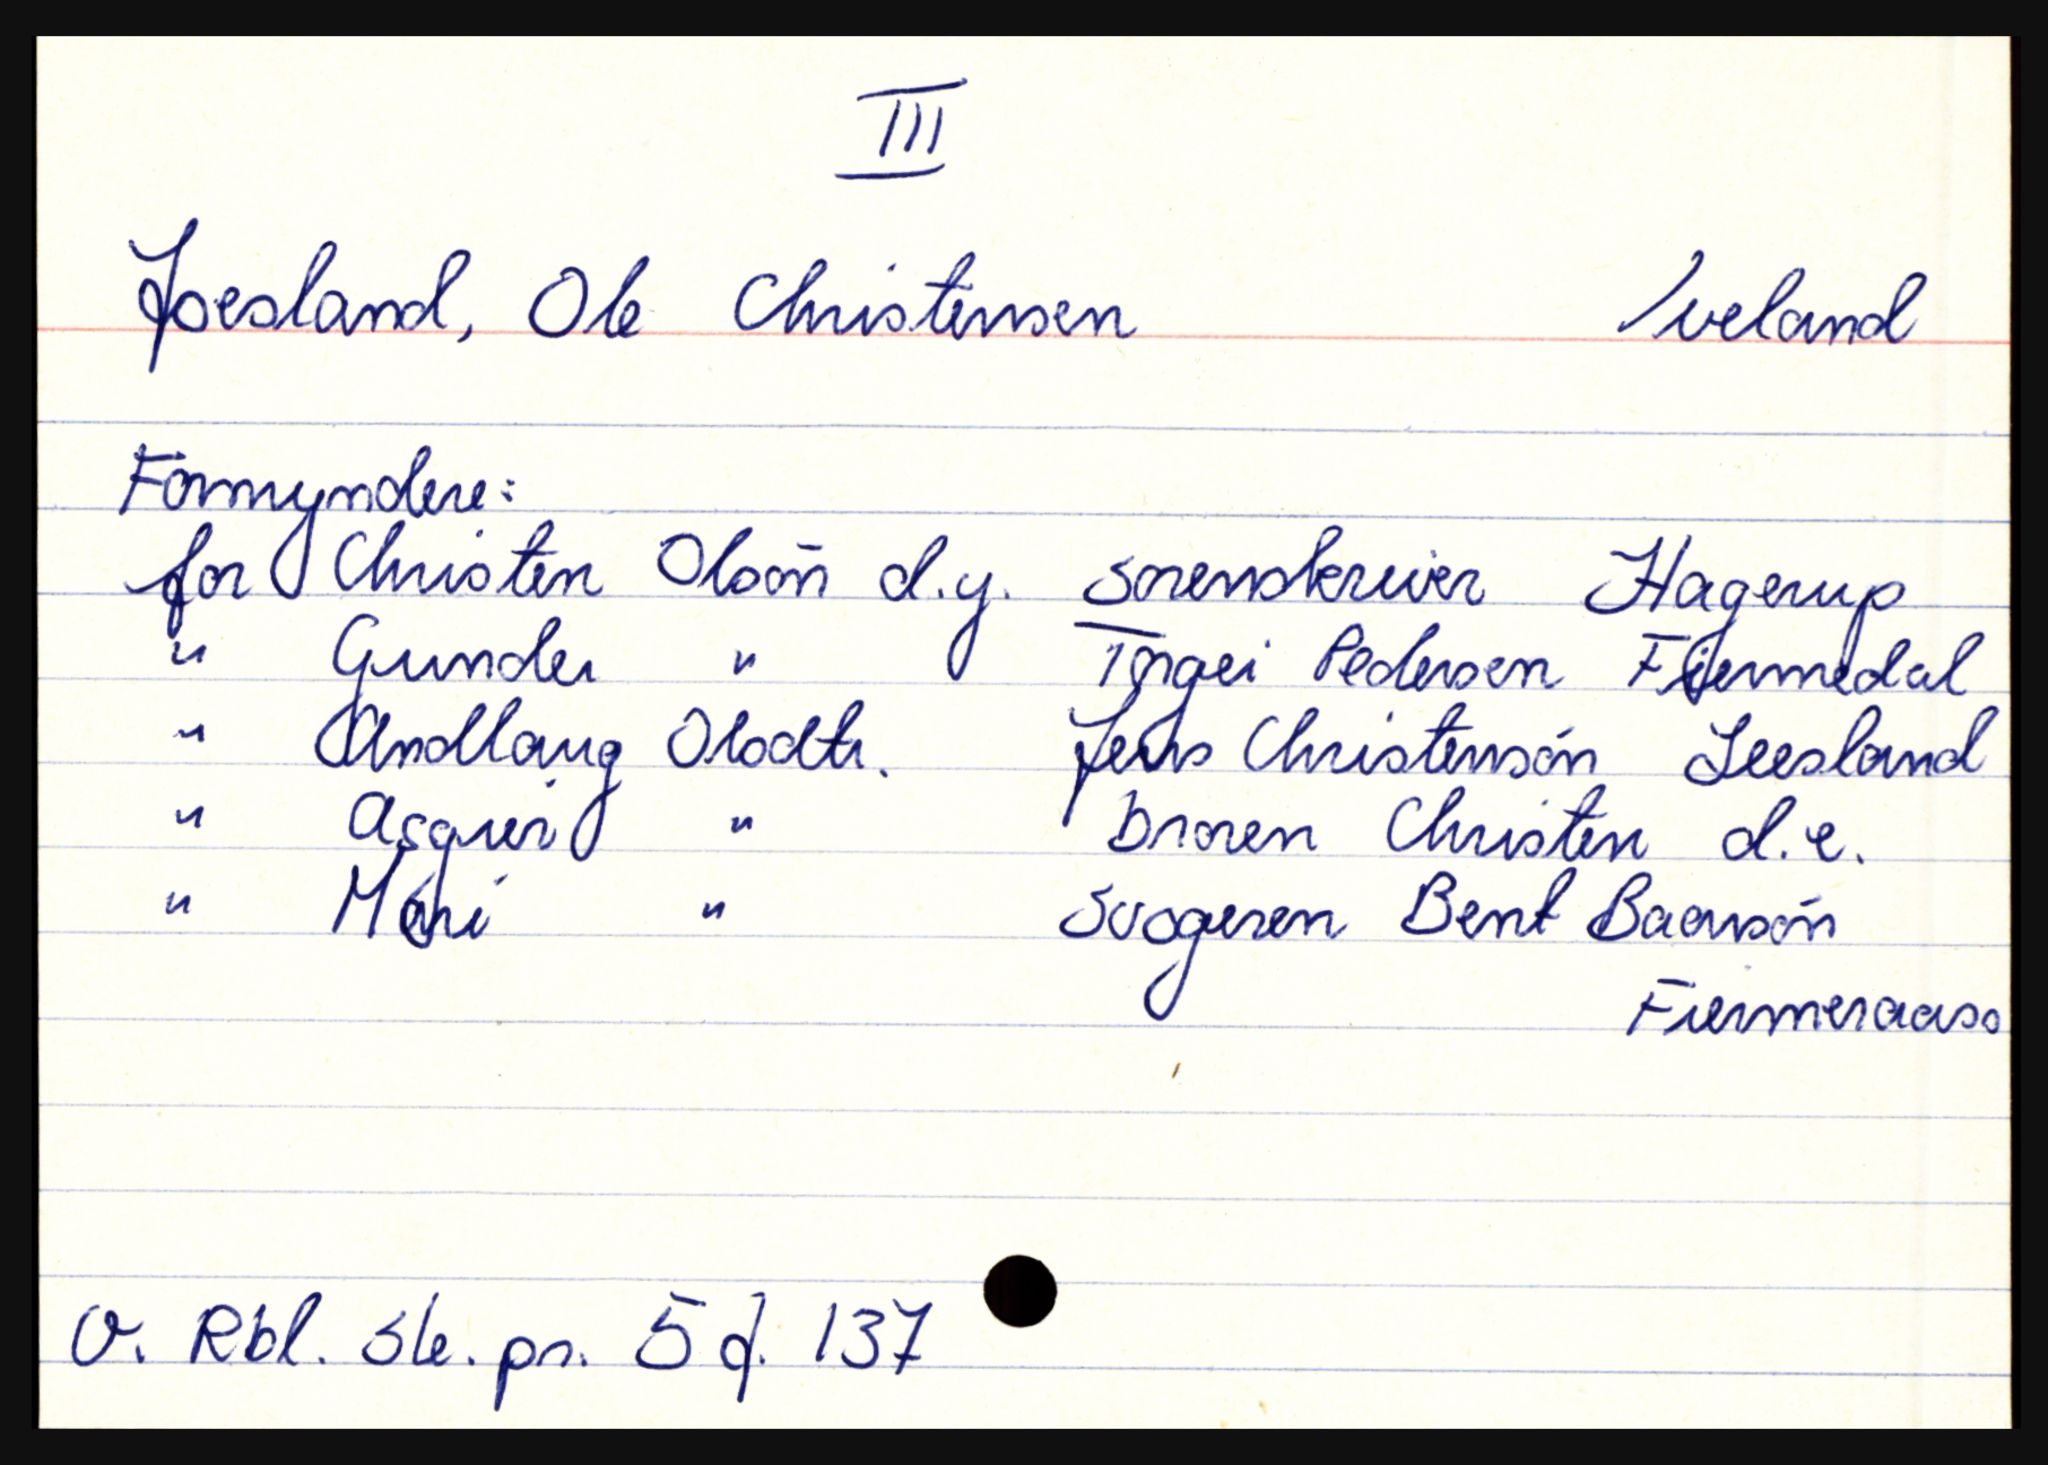 III
Joesland, Ole Christensen Iveland
Formyndere:
for Christen Olsøn d.y. sorenskriver Hagerup
" Gunder " Torgei Pedersen Fiermedal
" Andlaug Olsdtr. Jens Christensøn Leesland
" Asgier " broren Christen d.e.
" Mari " svogeren Bent Baarsøn
Fiermeraass
V. Rbl. sk. pr. 5 f. 137